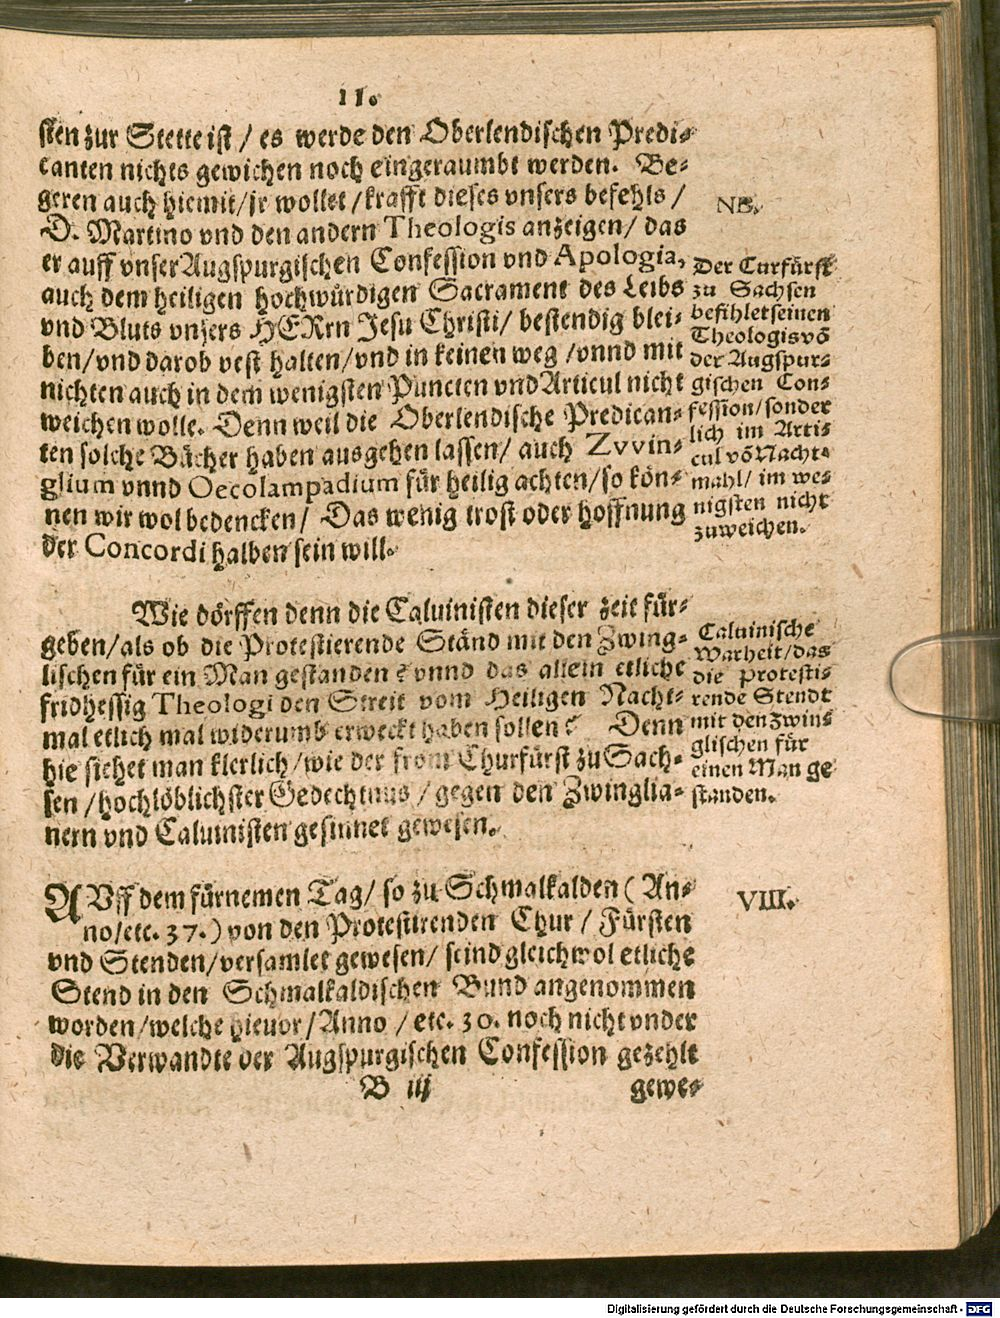 11.
sten zur Stette ist / es werde den Oberlendischen Predi-
canten nichts gewichen noch eingeraumbt werden. Be-
geren auch hiemit/jr wollet /krafft dieses vnsers befehls /
D. Martino vnd den andern Theologis anzeigen/ das
er auff vnser Augspurgischen Confession vnd Apologia,
auch dem heiligen hochwürdigen Sacrament des Leibs
vnd Bluts vnsers HERrn Jesu Christi/ bestendig blei-
ben/vnd darob vest halten/vnd in keinen weg /vnnd mit
nichten auch in dem wenigsten Puncten vnd Articul nicht
weichen wolle. Denn weil die Oberlendische Predican-
ten solche Bücher haben ausgehen lassen/ auch Zvvin-
glium vnnd Oecolampadium für heilig achten/so kön-
nen wir wol bedencken/ Das wenig trost oder hoffnung
der Concordi halben sein will.
NB.
Der Curfürst
zu Sachsen
befihlet seinen
Theologis võ
der Augspur-
gischen Con-
fession/sonder
lich im Arti-
cul võ Nacht-
mahl/ im we-
nigsten nicht
zuweichen.
Wie dörffen denn die Caluinisten dieser zeit für-
geben/als ob die Protestierende Ständ mit den Zwing-
lischen für ein Man gestanden? vnnd das allein etliche
fridhessig Theologi den Streit vom Heiligen Nacht-
mal etlich mal widerumb erweckt haben sollen? Denn
hie siehet man klerlich/wie der from Churfürst zu Sach-
sen /hochlöblichster Gedechtnus / gegen den Zwinglia-
nern vnd Caluinisten gesinnet gewesen.
Caluinische
Warheit/das
die protesti-
rende Stendt
mit den Zwin-
glischen für
einen Man ge
standen.
AVff dem fürnemen Tag/ so zu Schmalkalden ( An-
no/etc. 37.) von den Protestirenden Chur / Fürsten
vnd Stenden/versamlet gewesen/ seind gleichwol etliche
Stend in den Schmalkaldischen Bund angenommen
worden/welche hieuor/Anno / etc. 30. noch nicht vnder
die Verwandte der Augspurgischen Confession gezehlt
VIII.
B iij gewe-
Digitalisierung gefördert durch die Deutsche Forschungsgemeinschaft - DFG